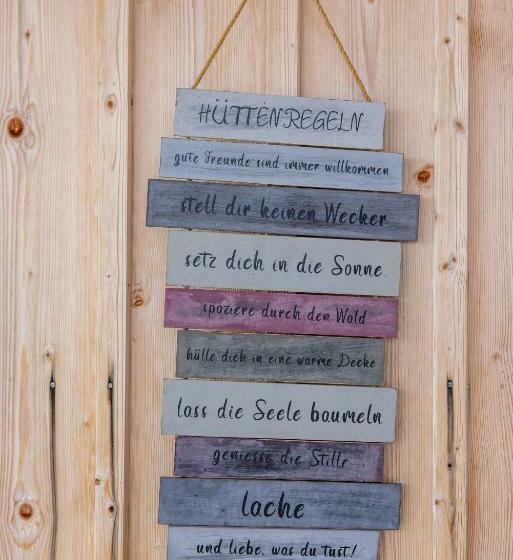 HÜTTENREGELN
gute Freunde sind immer willkommen
stell dir keinen Wecker
setz dich in die Sonne
spaziere durch den Wald
hülle dich in eine warme Decke
lass die Seele baumeln
geniesse die Stille
lache
und liebe, was du tust!